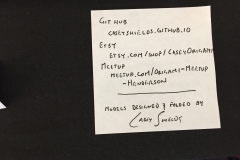 GitHub
caseyshields.github.io
Etsy
Etsy.com/shop/CaseyOrigami
Meetup
Meetup.com/Origami-Meetup
-Henderson
Models Designed & Folded by
Casey Shields